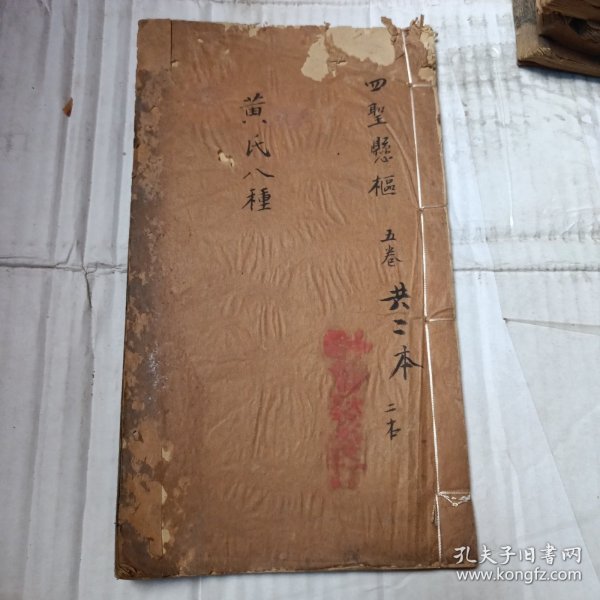 四聖懸樞 五卷 共二本 二本
黄氏八種
孔夫子旧书网
www.kongfz.com